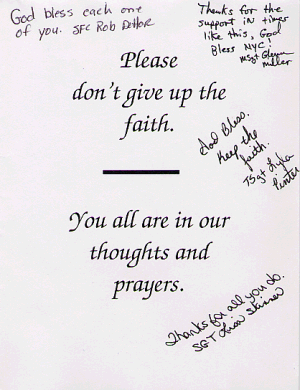 God bless each one
of you. SFC Rob
Thanks for the
support in times
like this, God
Bless NYC!
MSgt Glenn
Miller
Please
don't give up the
faith.
God Bless.
Keep the
faith.
TSgt Lyla
You all are in our
thoughts and
prayers.
Thanks for all you do.
SGT